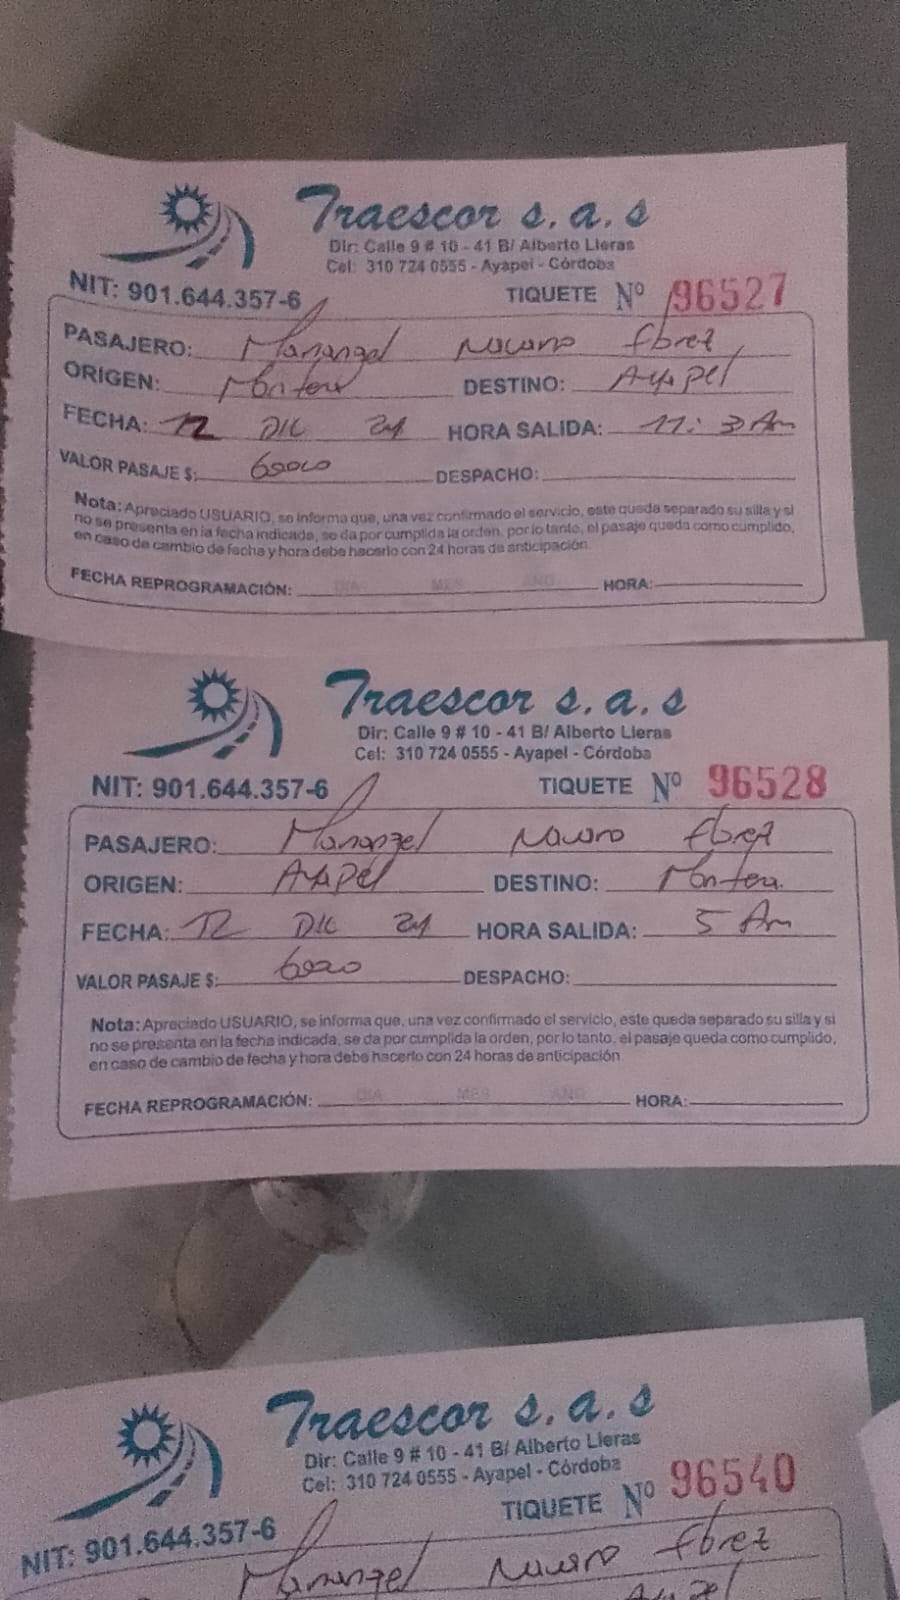 Traescor s.a.s
Dir: Calle 9 # 10 - 41 B/ Alberto Lleras
Cel: 310 724 0555 - Ayapel - Córdoba
NIT: 901.644.357-6 TIQUETE Nº 96527
PASAJERO: Mariangel Navarro
ORIGEN: Monteria DESTINO: Ayapel
FECHA: 12 DIC 24 HORA SALIDA: 11:3 Am
VALOR PASAJE $: DESPACHO:
Nota: Apreciado USUARIO, se informa que, una vez confirmado el servicio, este queda separado su silla y si
no se presenta en la fecha indicada, se da por cumplida la orden, por lo tanto, el pasaje queda como cumplido,
en caso de cambio de fecha y hora debe hacerlo con 24 horas de anticipación.
FECHA REPROGRAMACIÓN: DIA MES AÑO HORA:
Traescor s.a.s
Dir: Calle 9 # 10 - 41 B/ Alberto Lleras
Cel: 310 724 0555 - Ayapel - Córdoba
NIT: 901.644.357-6 TIQUETE Nº 96528
PASAJERO: Mariangel Navarro
ORIGEN: AyAPel DESTINO: Monteria.
FECHA: 12 DIC 24 HORA SALIDA: 5 Am
VALOR PASAJE $: DESPACHO:
Nota: Apreciado USUARIO, se informa que, una vez confirmado el servicio, este queda separado su silla y si
no se presenta en la fecha indicada, se da por cumplida la orden, por lo tanto, el pasaje queda como cumplido,
en caso de cambio de fecha y hora debe hacerlo con 24 horas de anticipación.
FECHA REPROGRAMACIÓN: DIA MES AÑO HORA:
Traescor s.a.s
Dir: Calle 9 # 10 - 41 B/ Alberto Lleras
Cel: 310 724 0555 - Ayapel - Córdoba
NIT: 901.644.357-6 TIQUETE Nº 96540
Mariangel Navarro